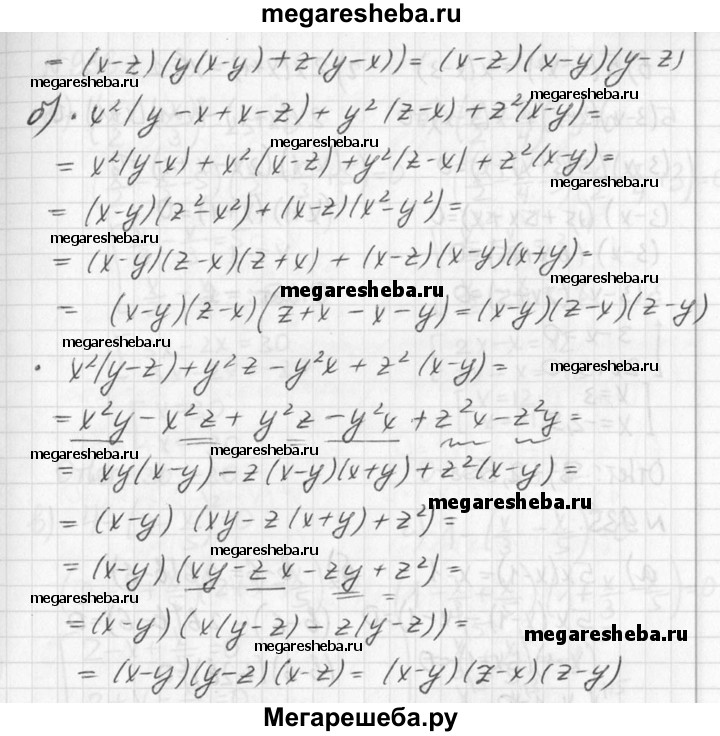 megaresheba.ru
= (x-z)(y(x-y)+z(y-x))= (x-z)(x-y)(y-z)
megaresheba.ru
megaresheba.ru
б) • x²(y-x+x-z)+y²(z-x)+z²(x-y)=
megaresheba.ru
= x²(y-x)+x²(x-z)+y²(z-x)+z²(x-y)=
megaresheba.ru
= (x-y)(z²-x²)+(x-z)(x²-y²)=
megaresheba.ru
= (x-y)(z-x)(z+x)+(x-z)(x-y)(x+y)=
megaresheba.ru
megaresheba.ru
= (x-y)(z-x)(z+x-x-y)=(x-y)(z-x)(z-y)
megaresheba.ru
• x²(y-z)+y²z-y²x+z²(x-y)=
megaresheba.ru
= x²y-x²z+y²z-y²x+z²x-z²y=
megaresheba.ru
= xy(x-y)-z(x-y)(x+y)+z²(x-y)=
megaresheba.ru
= (x-y)(xy-z(x+y)+z²)=
megaresheba.ru
= (x-y)(xy-zx-zy+z²)=
megaresheba.ru
=(x-y)(x(y-z)-z(y-z))=
megaresheba.ru
megaresheba.ru
= (x-y)(y-z)(x-z)= (x-y)(z-x)(z-y)
Мегарешеба.ру